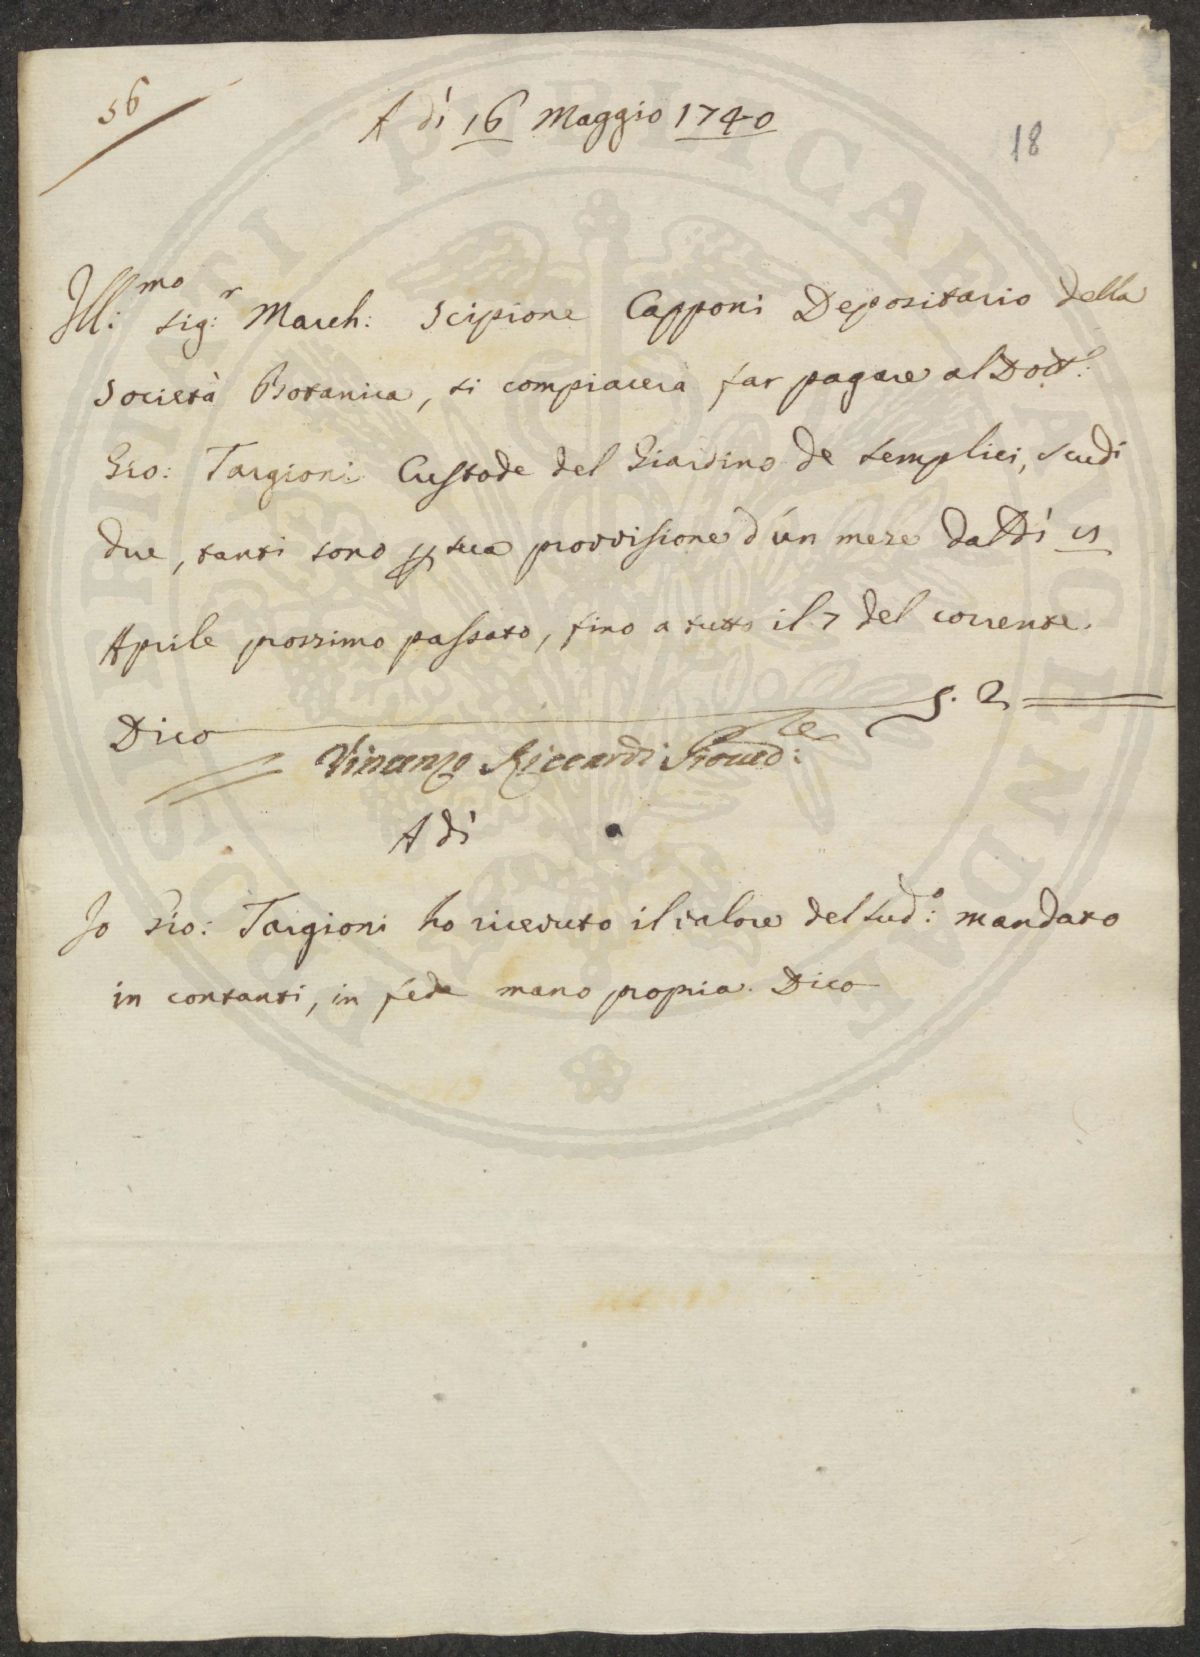 56
A dì 16 Maggio 1740
18
Ill:mo Sig:r March: Scipione Capponi Depositario della
Società Botanica, si compiacerà far pagare al Dott:
Gio: Targioni Custode del Giardino de semplici, scudi
due, tanti sono p sua provvisione d'un mese dal Dì
Aprile prossimo passato, fino a tutto il 7 del corrente.
Dico S. 2
Vincenzo Riccardi Proved:re
A dì
Io Gio: Targioni ho ricevuto il valore del sud:o mandato
in contanti, in fede mano propria. Dico